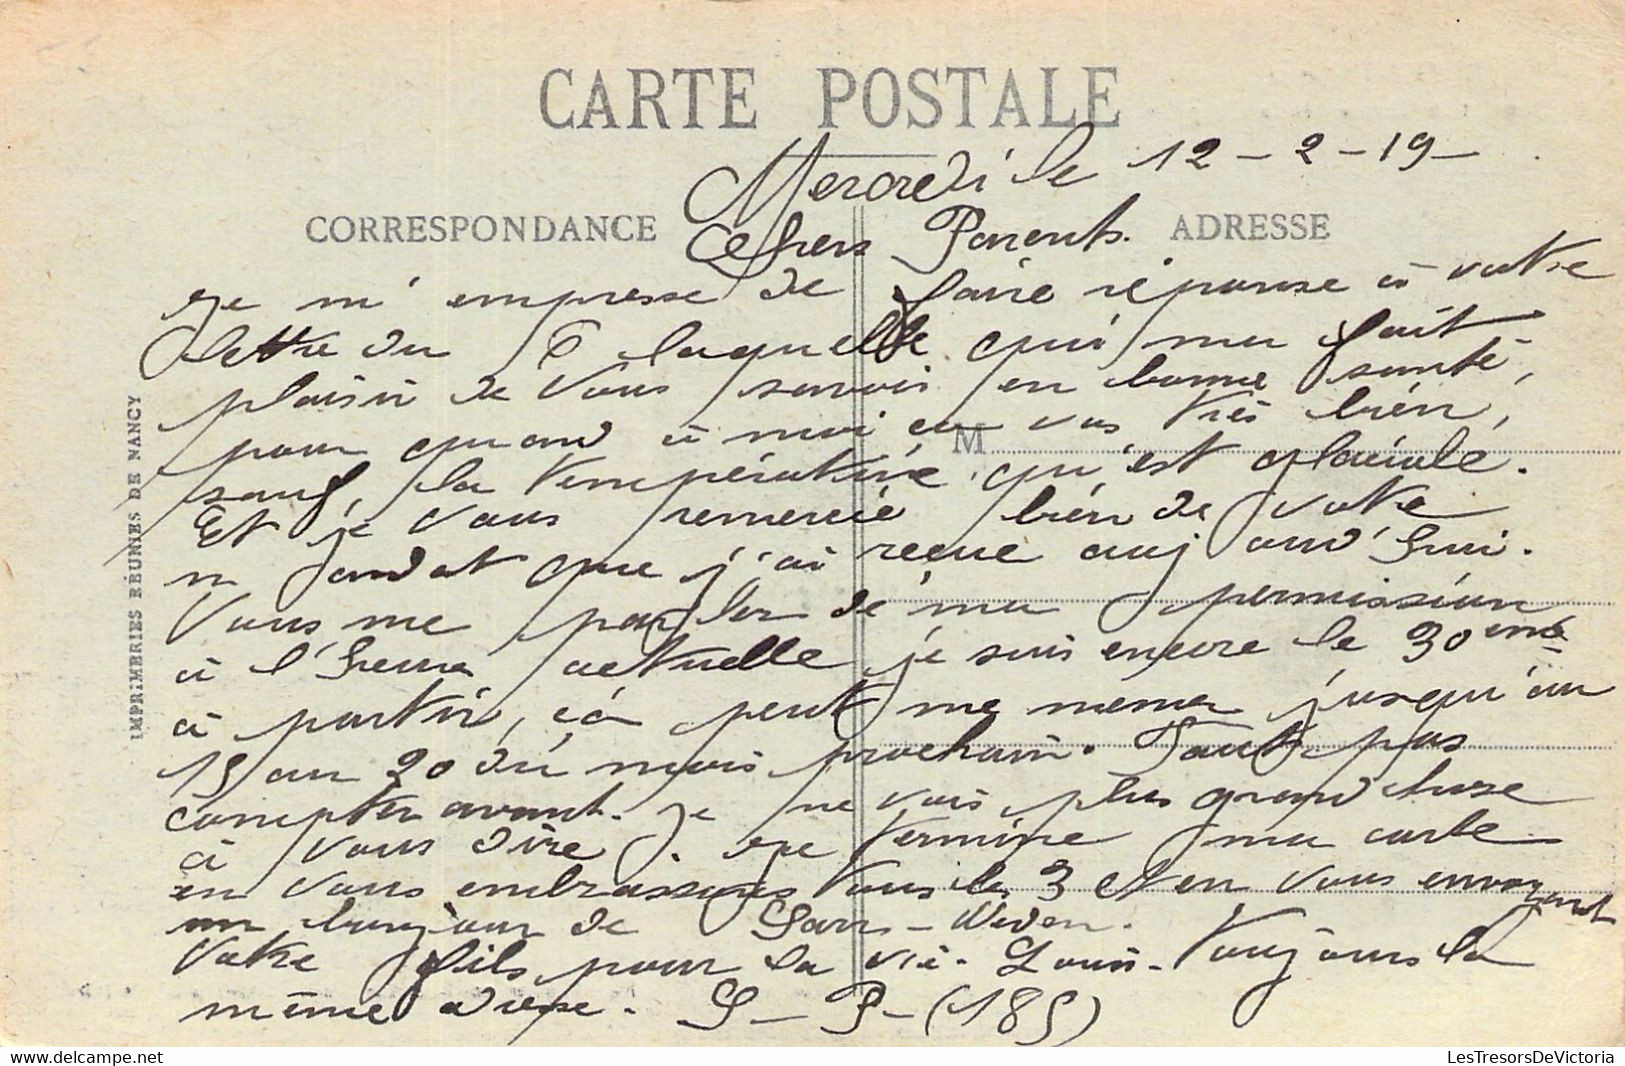 CARTE POSTALE
Mercredi le 12-2-19-
CORRESPONDANCE
ADRESSE
Chers Parents.
Je m'empresse de faire réponse à votre
lettre du 6 laquelle qui ma fait
plaisir de vous savoir en bonne santé,
pour quand à moi ça vas très bien,
M
sauf, la température qu'est glaciale.
Et je vous remercie bien de votre
mandat que j'ai reçue aujourd'hui.
Vous me parler de ma permission
à l'heure actuelle je suis encore le 30ème
à partir, çà peut me mener jusqu'au
15 au 20 du mois prochain. Faut pas
compter avant. Je ne vois plus grand chose
à vous dire. Je termine ma carte
en vous embrassant tous les 3 et en vous envoyant
un bonjour de
Votre fils pour la vie. Louis. Toujours la
même adresse. S-P-(185)
IMPRIMERIES RÉUNIES DE NANCY
LesTresorsDeVictoria